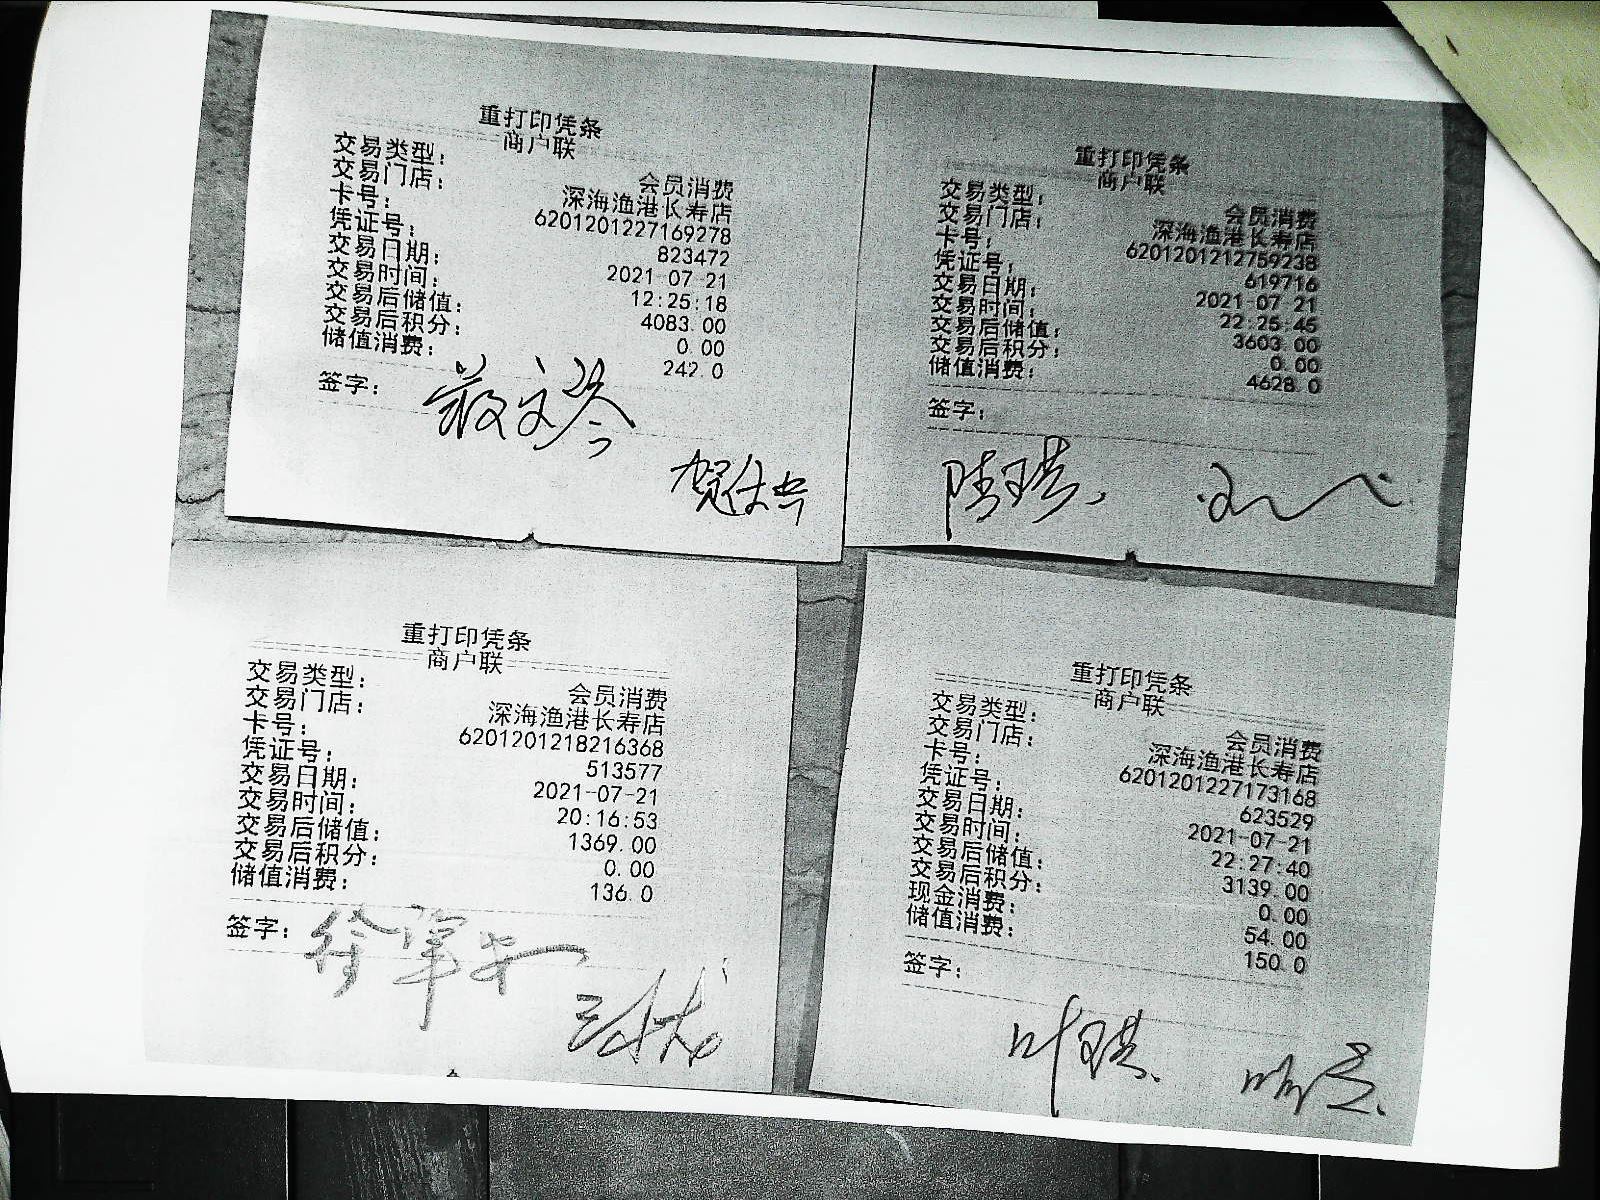 重打印凭条
商户联
交易类型： 会员消费
交易门店： 深海渔港长寿店
卡号： 6201201227169278
凭证号： 823472
交易日期： 2021-07-21
交易时间： 12:25:18
交易后储值： 4083.00
交易后积分： 0.00
储值消费： 242.0
签字：
重打印凭条
商户联
交易类型： 会员消费
交易门店： 深海渔港长寿店
卡号： 6201201212759238
凭证号： 619716
交易日期： 2021-07-21
交易时间： 22:25:45
交易后储值： 3603.00
交易后积分： 0.00
储值消费： 4628.0
签字：
重打印凭条
商户联
交易类型： 会员消费
交易门店： 深海渔港长寿店
卡号： 6201201218216368
凭证号： 513577
交易日期： 2021-07-21
交易时间： 20:16:53
交易后储值： 1369.00
交易后积分： 0.00
储值消费： 136.0
签字：
重打印凭条
商户联
交易类型： 会员消费
交易门店： 深海渔港长寿店
卡号： 6201201227173168
凭证号： 623529
交易日期： 2021-07-21
交易时间： 22:27:40
交易后储值： 3139.00
交易后积分： 0.00
现金消费： 54.00
储值消费： 150.0
签字：